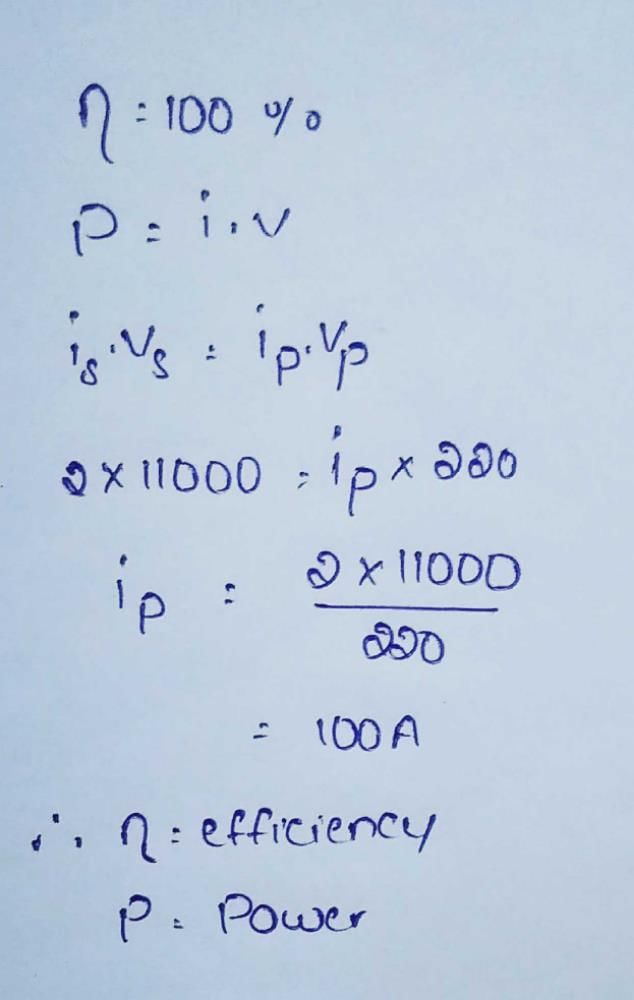 η = 100 %
P = i.v
is.Vs = ip.Vp
2 x 11000 = ip x 220
ip = 2 x 11000
220
= 100A
∴ η = efficiency
P = Power